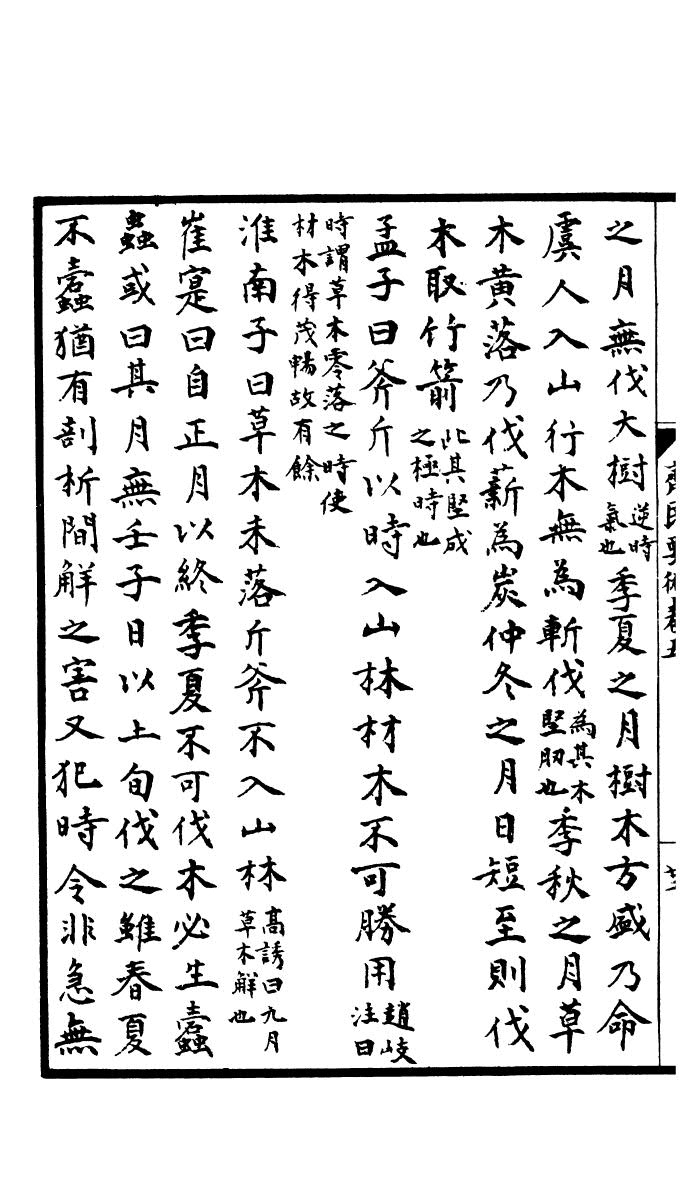 齊民要術卷五
之月無伐大樹逆時氣也季夏之月樹木方盛乃命
虞人入山行木無為斬伐為其木堅肕也季秋之月草
木黄落乃伐薪為炭仲冬之月日短至則伐
木取竹箭此其堅成之極時也
孟子曰斧斤以時入山林材木不可勝用趙岐注曰
時謂草木零落之時使材木得茂暢故有餘
淮南子曰草木未落斤斧不入山林高誘曰九月草木解也
崔寔曰自正月以終季夏不可伐木必生蠹
蟲或曰其月無壬子日以上旬伐之雖春夏
不蠹猶有剖析間解之害又犯時令非急無